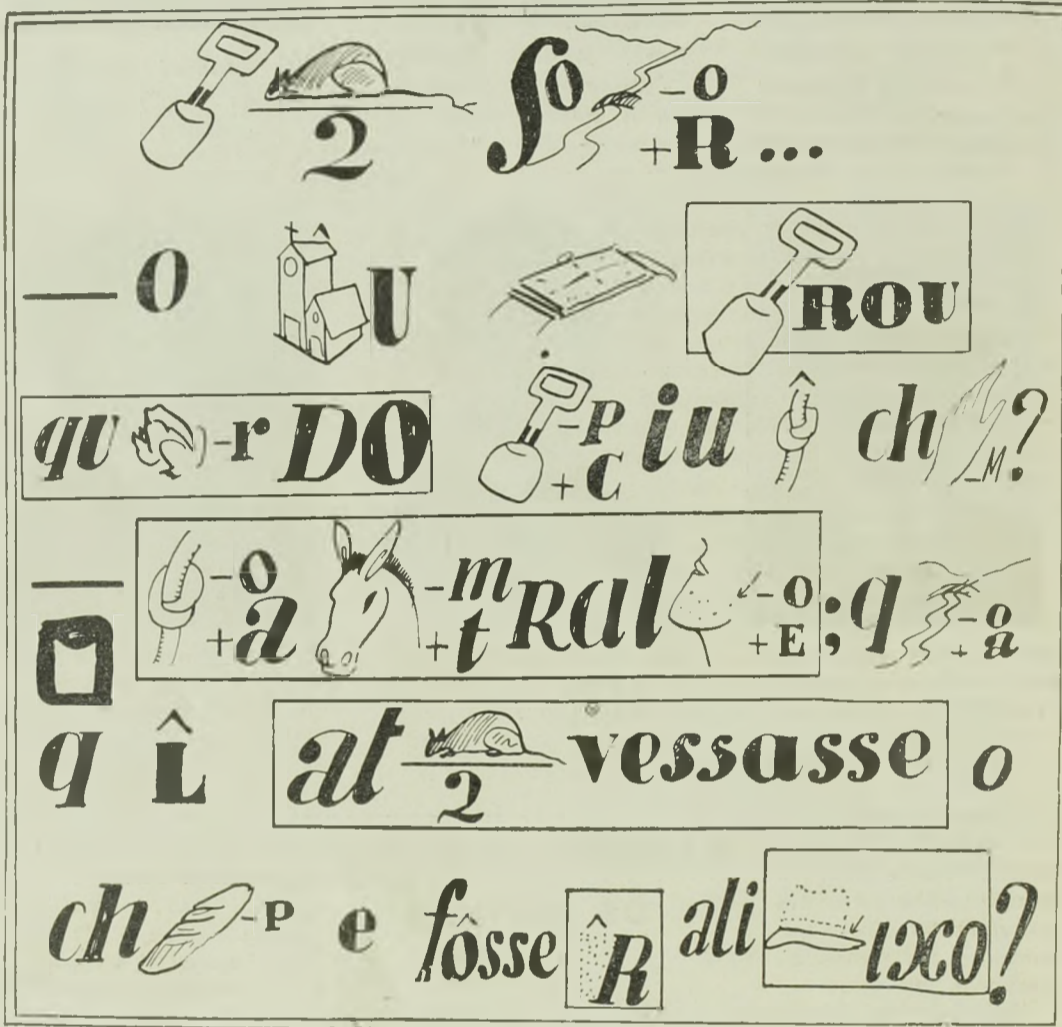 2 SO -O +R ...
— O U ROU
qu -r DO -P +C iu ^ ch -M?
— -O +a -m +t Ral -O +E; q -o +a
q L̂ at 2 vessasse o
ch -P e fôsse R̂ ali OXI?